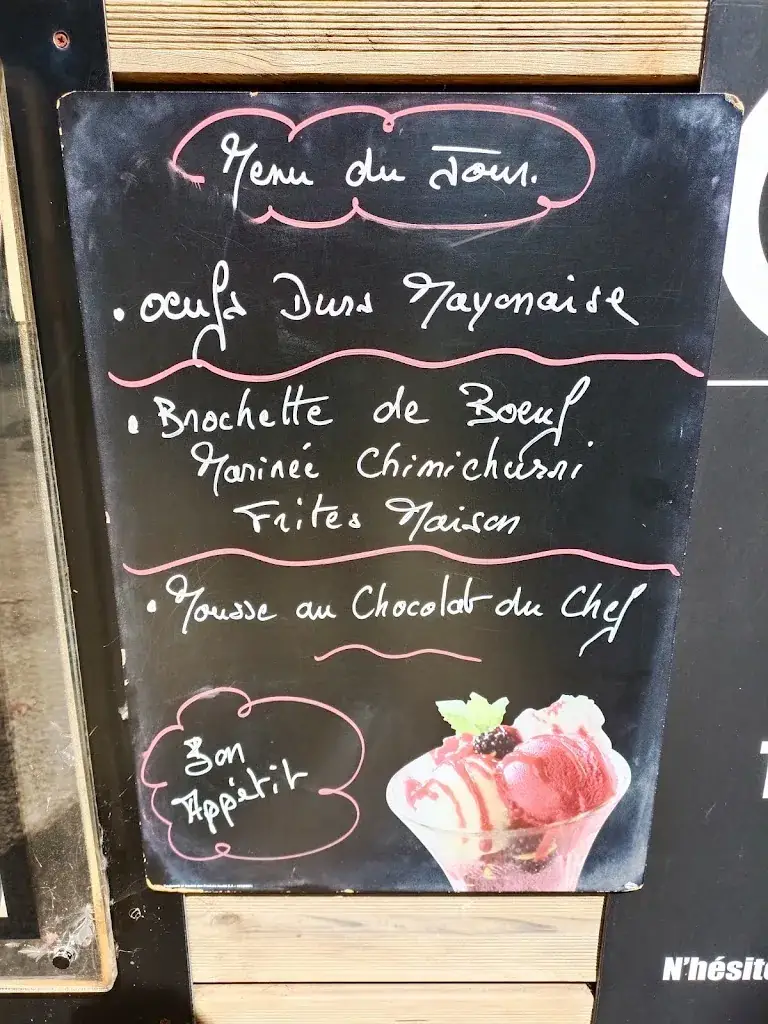 Menu du Jour.
• oeufs Durs Mayonaise
• Brochette de Boeuf
Marinée Chimichurri
Frites Maison
• Mousse au Chocolat du Chef
Bon
Appétit
N'hésite